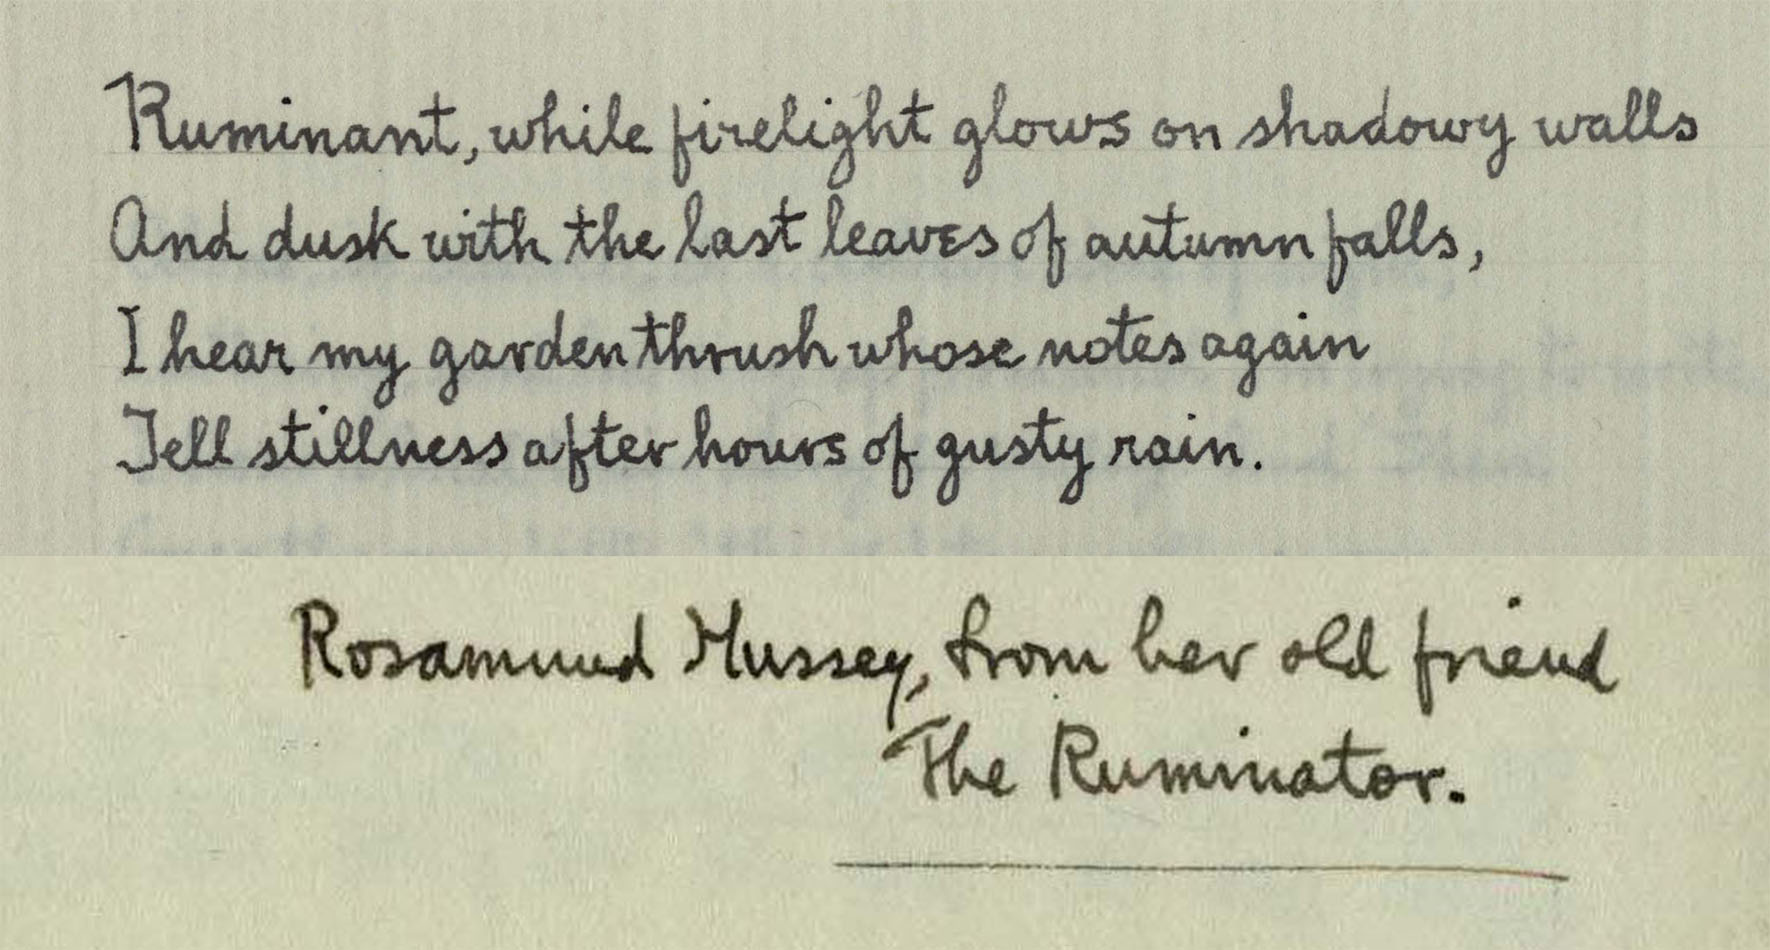 Ruminant, while firelight glows on shadowy walls
And dusk with the last leaves of autumn falls,
I hear my garden thrush whose notes again
Tell stillness after hours of gusty rain.
Rosamund Hussey, from her old friend
The Ruminator.